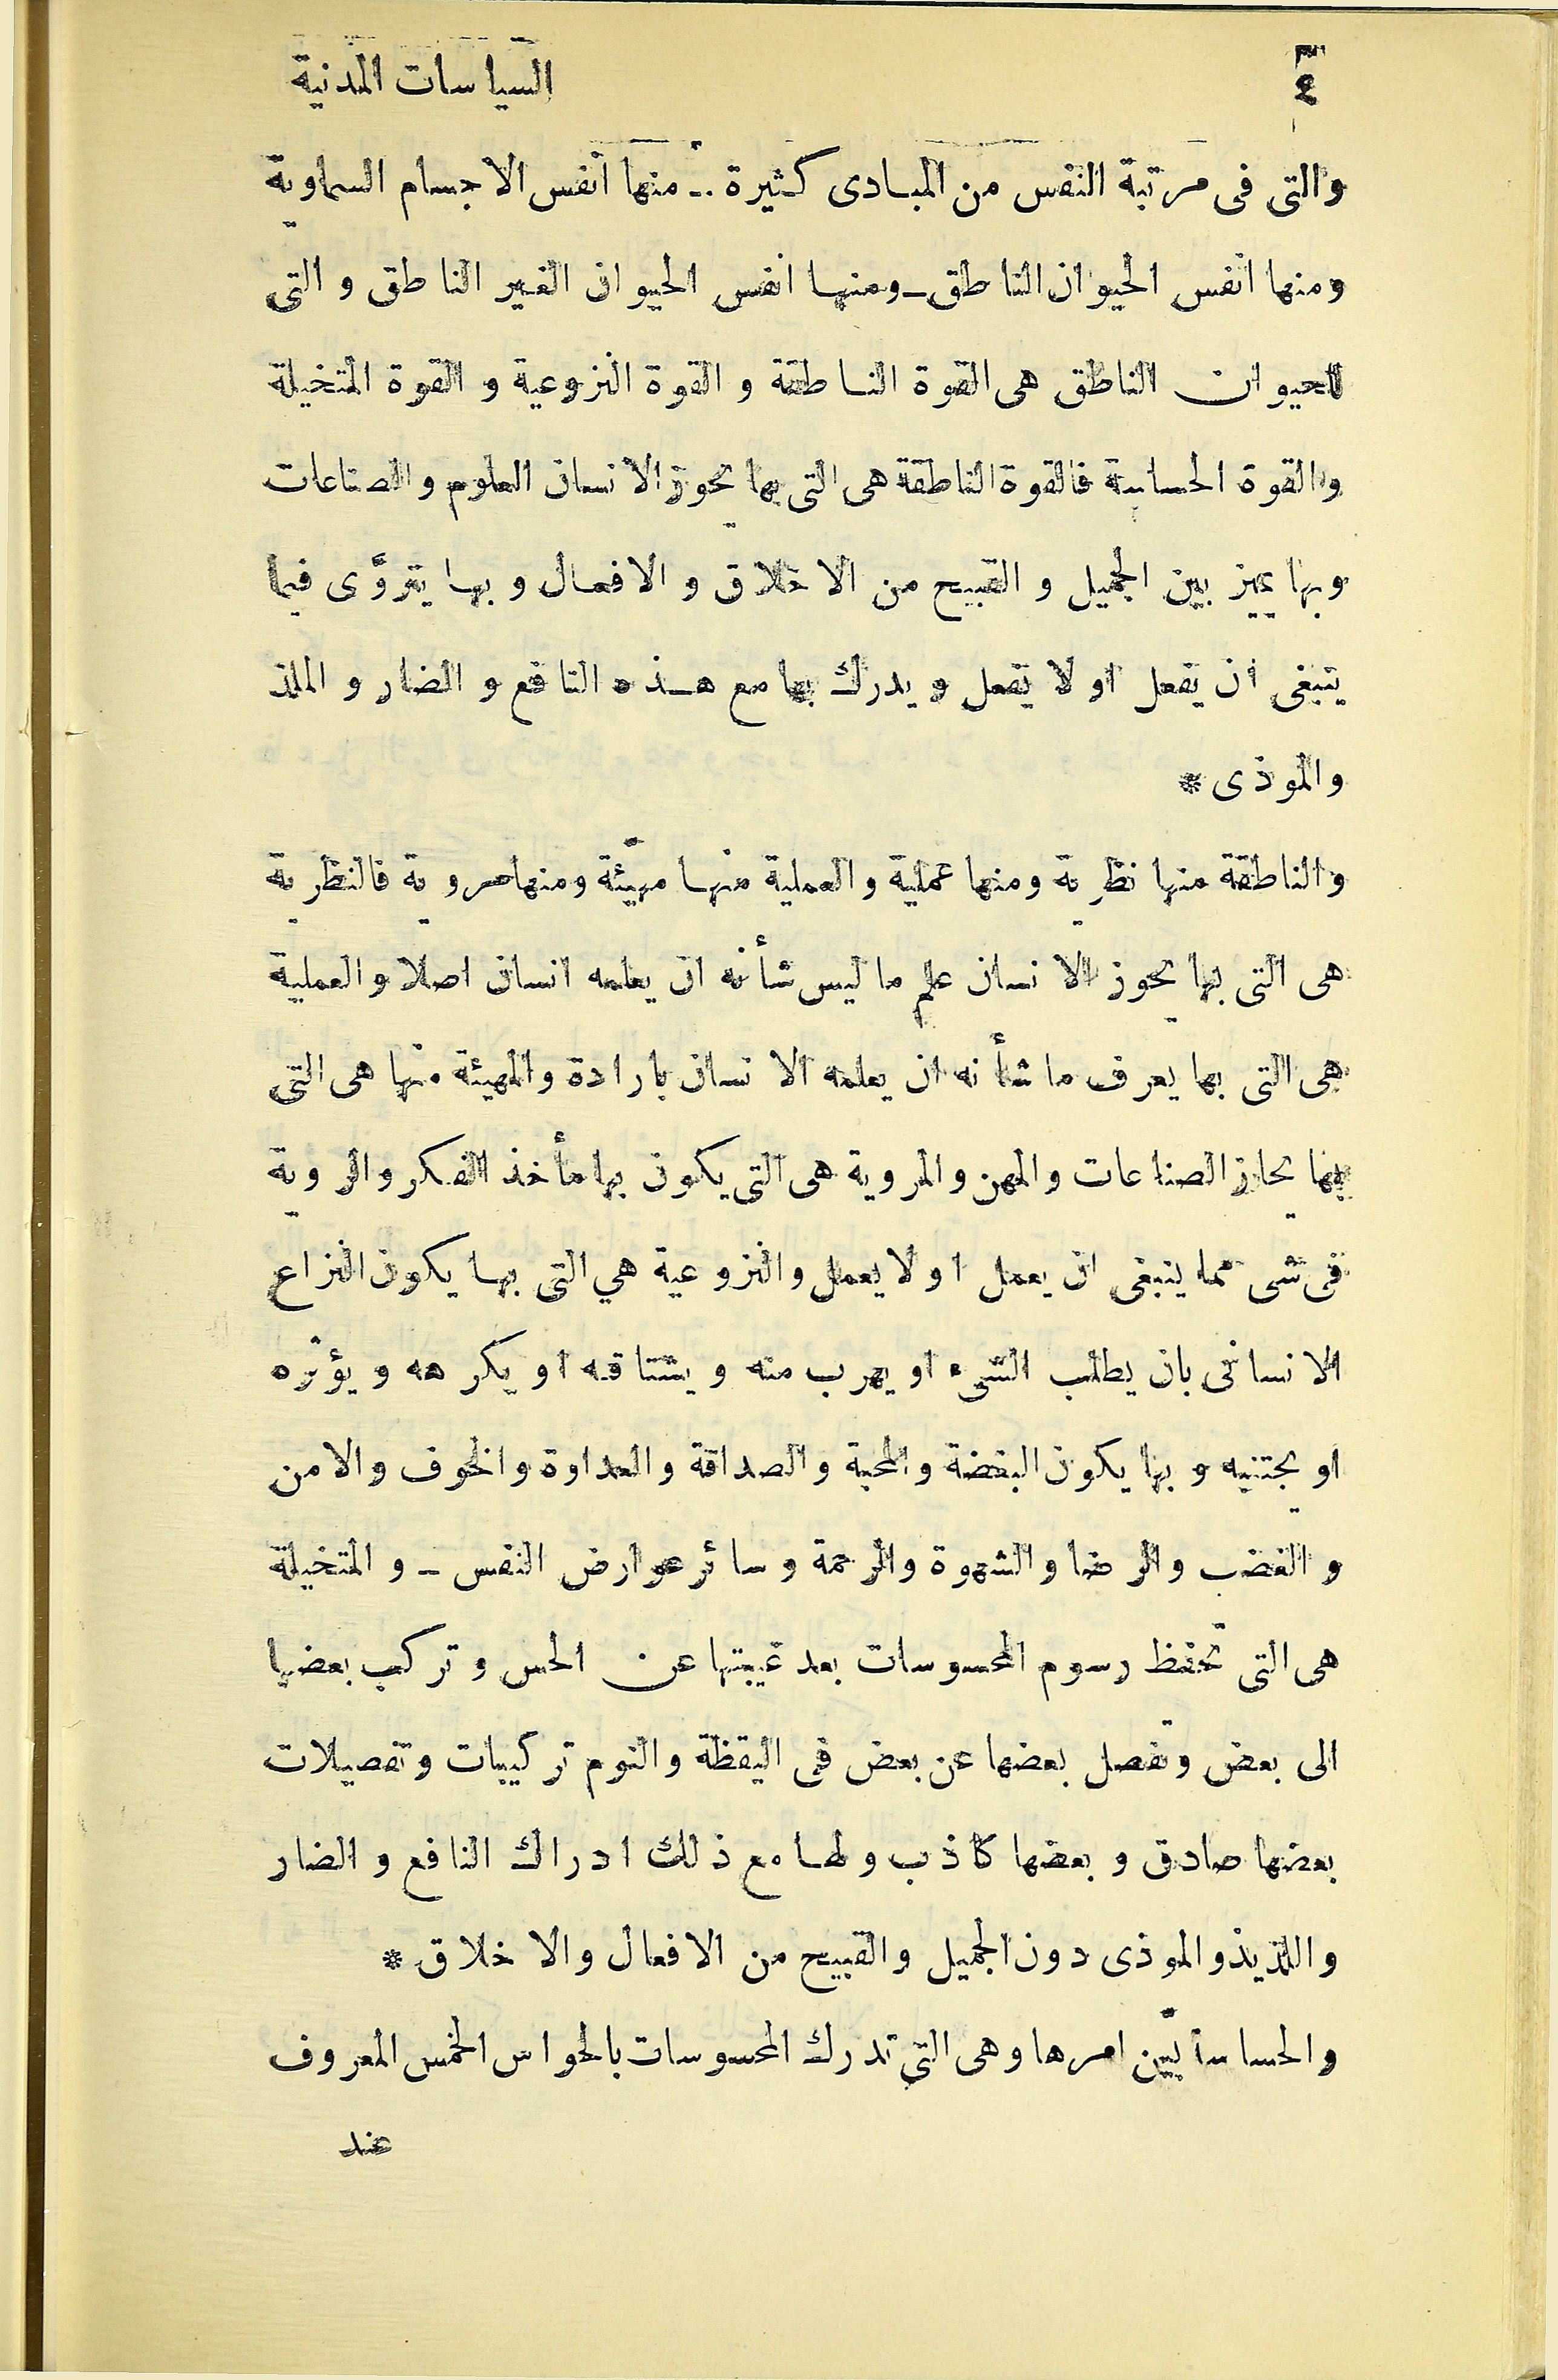 ٤
السياسات المدنية
والتى فى مرتبة النفس من المبادى كثيرة ـ منها انفس الاجسام السماوية
ومنها انفس الحيوان الناطق ـ ومنها انفس الحيوان الغير الناطق والتى
للحيوان الناطق هى القوة الناطقة والقوة النزوعية والقوة المتخيلة
والقوة الحساسة فالقوة الناطقة هى التى بها يحوز الانسان العلوم والصناعات
وبها يميز بين الجميل والقبيح من الاخلاق والافعال وبها يتروَّى فيما
ينبغى ان يفعل او لا يفعل ويدرك بها مع هذه النافع والضار والملذ
والموذى *
والناطقة منها نظرية ومنها عملية والعملية منها مهيّئة ومنها مروية فالنظرية
هى التى بها يحوز الانسان علم ما ليس شأنه ان يعلمه انسان اصلا والعملية
هى التى بها يعرف ما شأنه ان يعلمه الانسان بارادة والمهيئة منها هى التى
بها يحاز الصناعات والمهن والمروية هى التى يكون بها مأخذ الفكر والروية
فى شى مما ينبغى ان يعمل اولا يعمل والنزوعية هي التى بها يكون النزاع
الانسانى بان يطلب الشىء او يهرب منه ويشتاقه او يكرهه ويؤثره
او يجتنبه وبها يكون البغضة والمحبة والصداقة والعداوة والخوف والامن
والغضب والرضا والشهوة والرحمة وسائر عوارض النفس ـ والمتخيلة
هى التى تحفظ رسوم المحسوسات بعد غيبتها عن الحس وتركب بعضها
الى بعض وتفصل بعضها عن بعض فى اليقظة والنوم تركيبات وتفصيلات
بعضها صادق وبعضها كاذب ولها مع ذلك ادراك النافع والضار
واللذيذ والموذى دون الجميل والقبيح من الافعال والاخلاق *
والحساسة بيّن امرها وهى التى تدرك المحسوسات بالحواس الخمس المعروف
عند